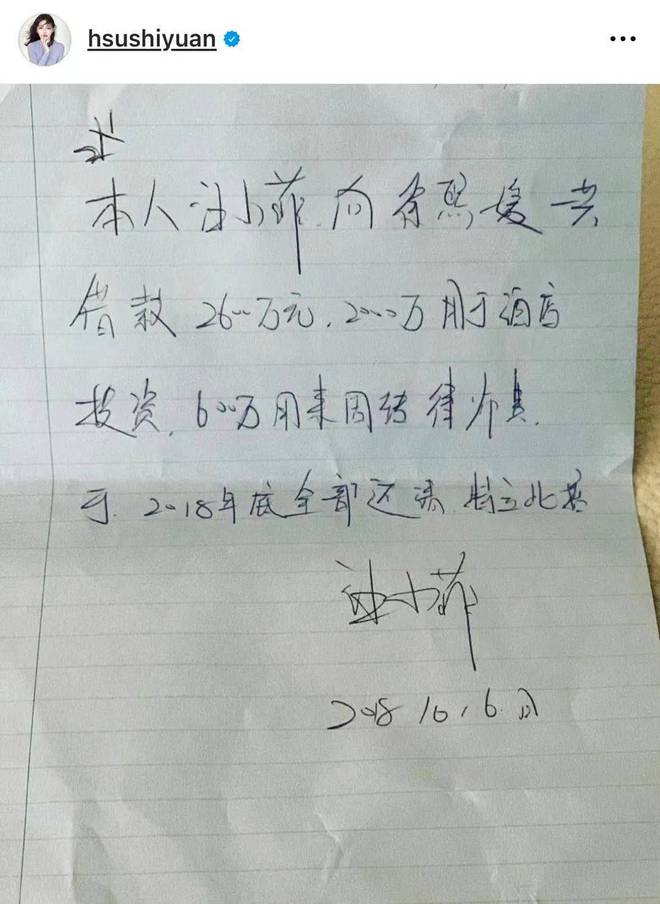 hsushiyuan
本人汪小菲.向徐熙媛共
借款 2600万元.2000万用于酒店
投资.600万用来周转律师费.
于.2018年底全部还清.特立此券
汪小菲
2018.10.6.